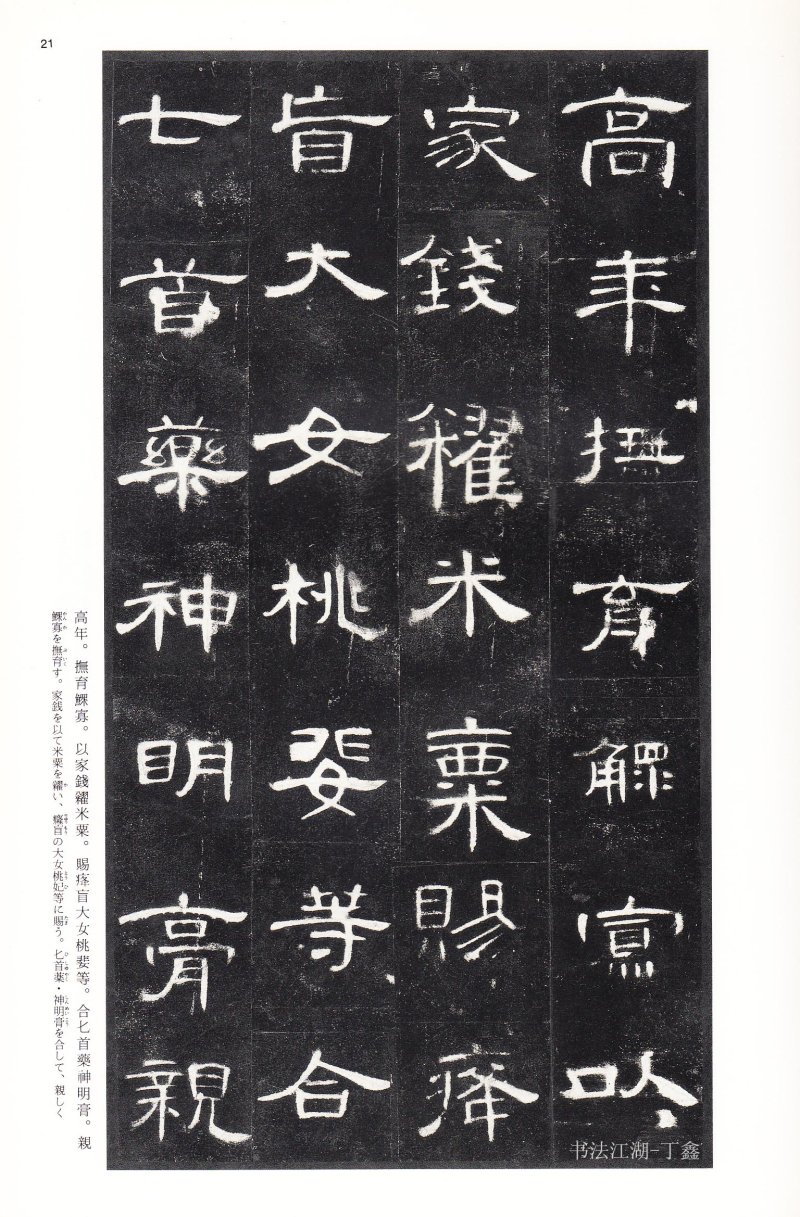 21
高年撫育鰥寡以
家錢糴米粟賜癃
盲大女桃婓等合
七首藥神明膏親
高年。撫育鰥寡。以家錢糴米粟。賜癃盲大女桃婓等。合匕首藥神明膏。親
鰥寡を撫育す。家銭を以て米粟を糴い、癃盲の大女桃妃等に賜う。匕首薬・神明膏を合して、親しく
书法江湖-丁鑫